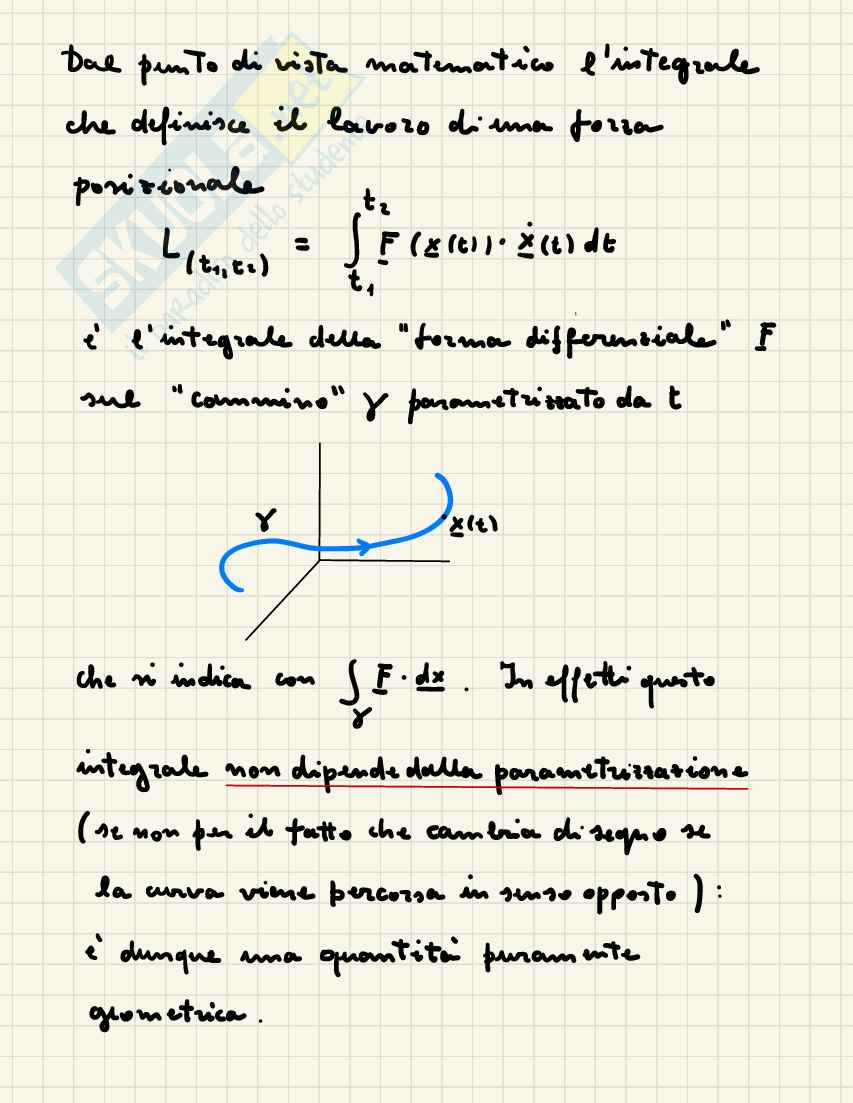 Dal punto di vista matematico l'integrale
che definisce il lavoro di una forza
posizionale
L(t₁,t₂) = ∫_{t₁}^{t₂} F̲ (x̲(t)) · ẋ̲(t) dt
e' l'integrale della "forma differenziale" F̲
sul "cammino" γ parametrizzato da t
γ
x̲(t)
che si indica con ∫_γ F̲ · d̲x̲ . In effetti questo
integrale non dipende dalla parametrizzazione
(se non per il fatto che cambia di segno se
la curva viene percorsa in senso opposto) :
e' dunque una quantità puramente
geometrica .
SKUOLA.net
il paradiso dello studente